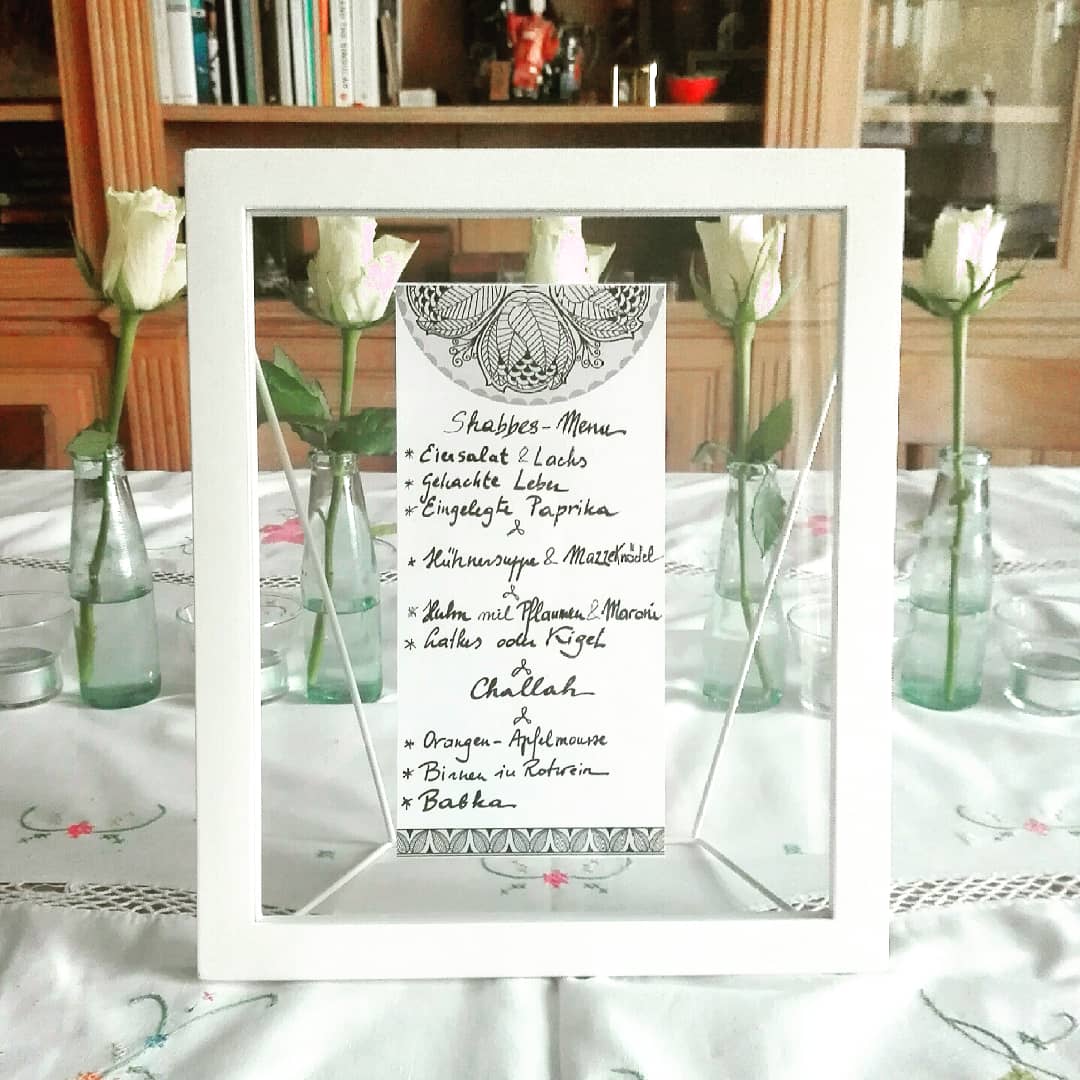 Shabbes-Menu
* Eiersalat & Lachs
* Gehackte Leber
* Eingelegte Paprika
* Hühnersuppe & Mazzeknödel
* Huhn mit Pflaumen & Maroni
* Latkes oder Kigel
Challah
* Orangen-Apfelmousse
* Birnen in Rotwein
* Babka